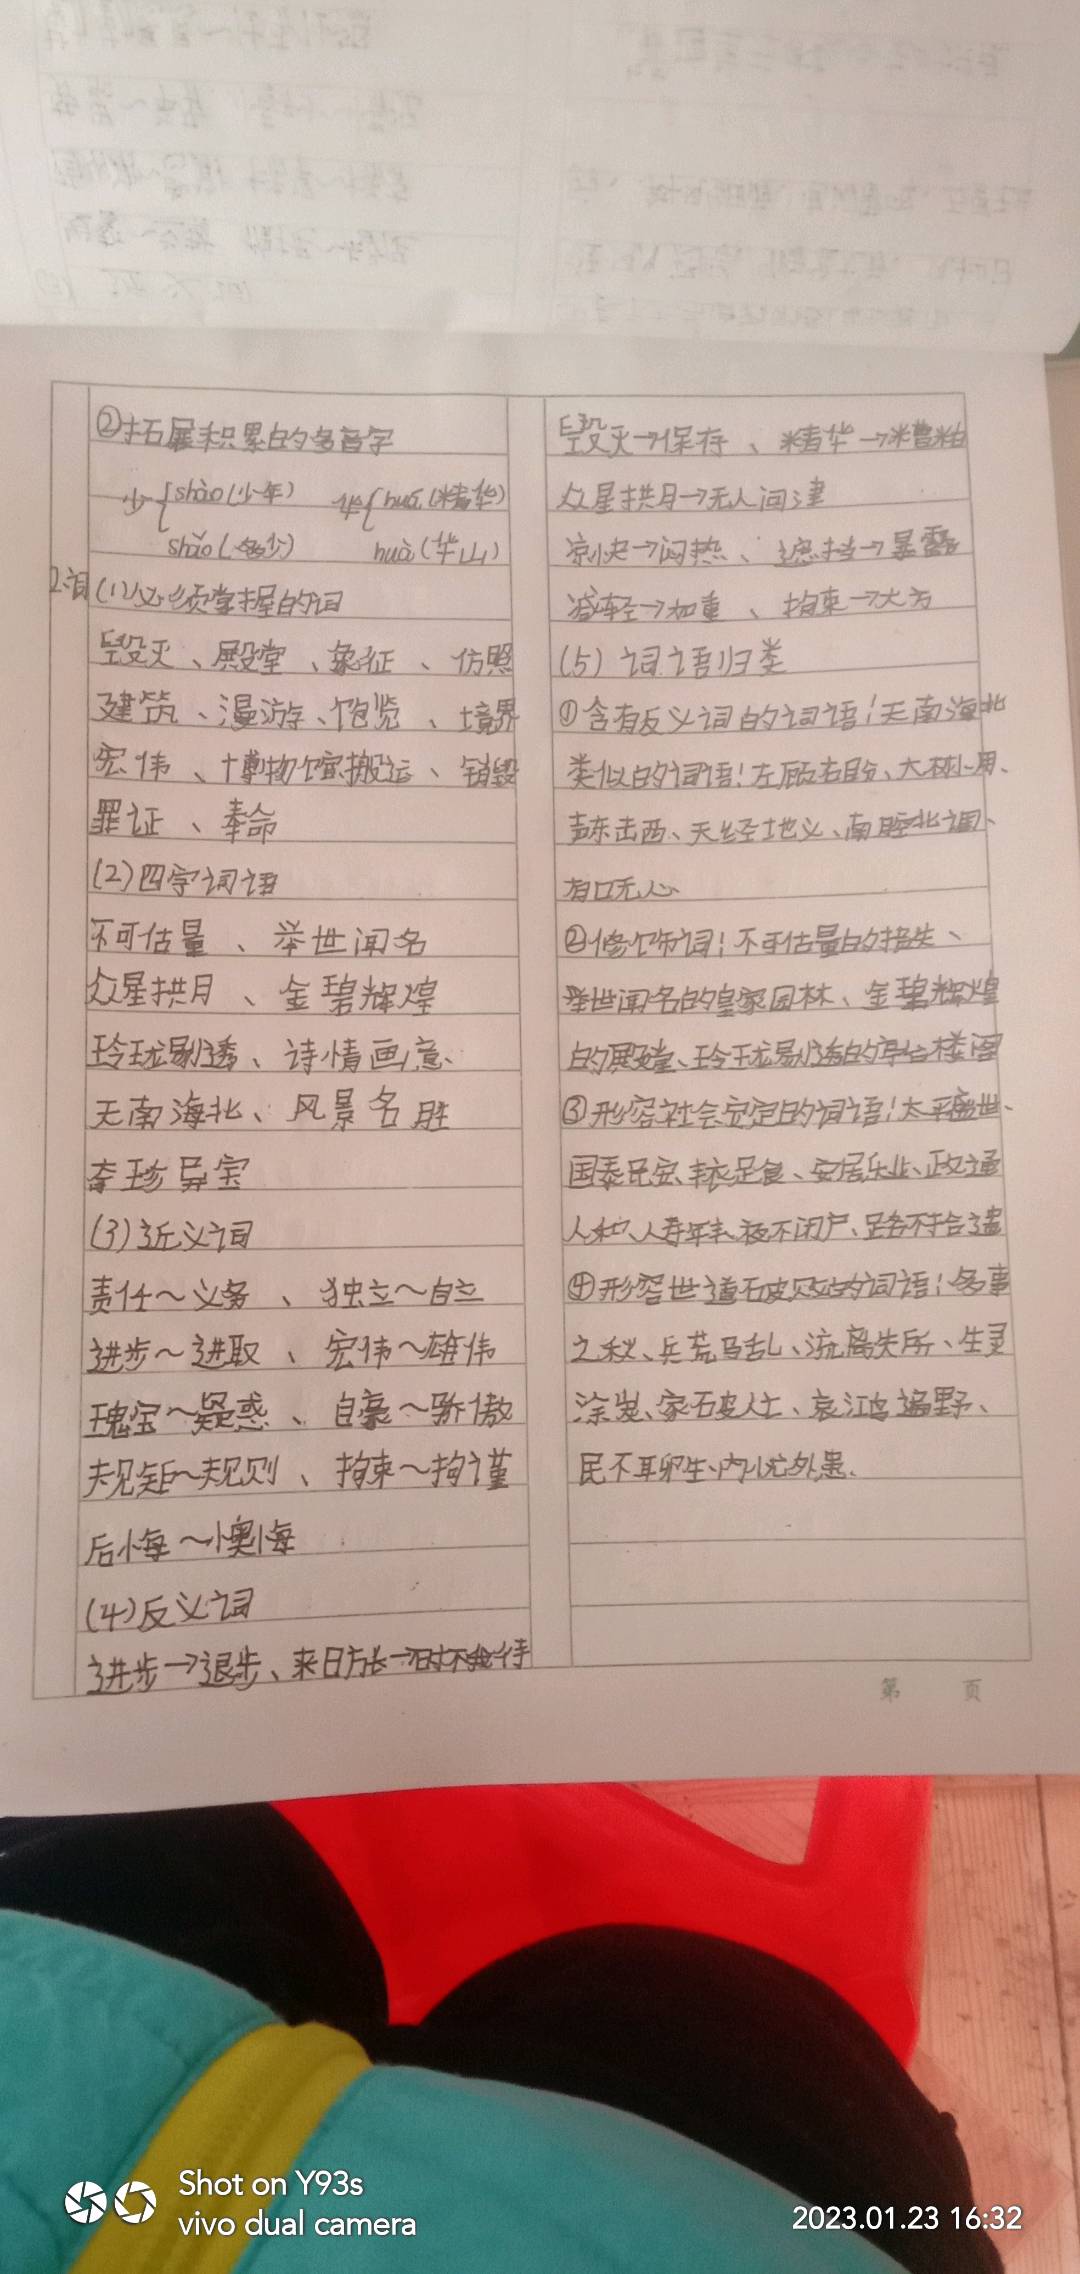 ②拓展积累的多音字
少{shào(少年) 华{huá(精华)
shǎo(多少) huà(华山)
2.词(1)必须掌握的词
毁灭、殿堂、象征、仿照
建筑、漫游、饱览、境界
宏伟、博物馆、搬运、销毁
罪证、奉命
(2)四字词语
不可估量、举世闻名
众星拱月、金碧辉煌
玲珑剔透、诗情画意、
天南海北、风景名胜
奇珍异宝
(3)近义词
责任～义务、独立～自立
进步～进取、宏伟～雄伟
瑰宝～疑惑、自豪～骄傲
规矩～规则、拘束～拘谨
后悔～懊悔
(4)反义词
进步→退步、来日方长→时不我待
毁灭→保存、精华→糟粕
众星拱月→无人问津
凉快→闷热、遮挡→暴露
减轻→加重、拘束→大方
(5)词语归类
①含有反义词的词语：天南海北
类似的词语：左顾右盼、大材小用、
声东击西、天经地义、南腔北调、
有口无心
②修饰词：不可估量的损失、
举世闻名的皇家园林、金碧辉煌
的殿堂、玲珑剔透的亭台楼阁
③形容社会安定的词语：太平盛世、
国泰民安、丰衣足食、安居乐业、政通
人和、人寿年丰、夜不闭户、路不拾遗
④形容世道破败的词语：多事
之秋、兵荒马乱、流离失所、生灵
涂炭、家破人亡、哀鸿遍野、
民不聊生、内忧外患、
第 页
Shot on Y93s
vivo dual camera
2023.01.23 16:32